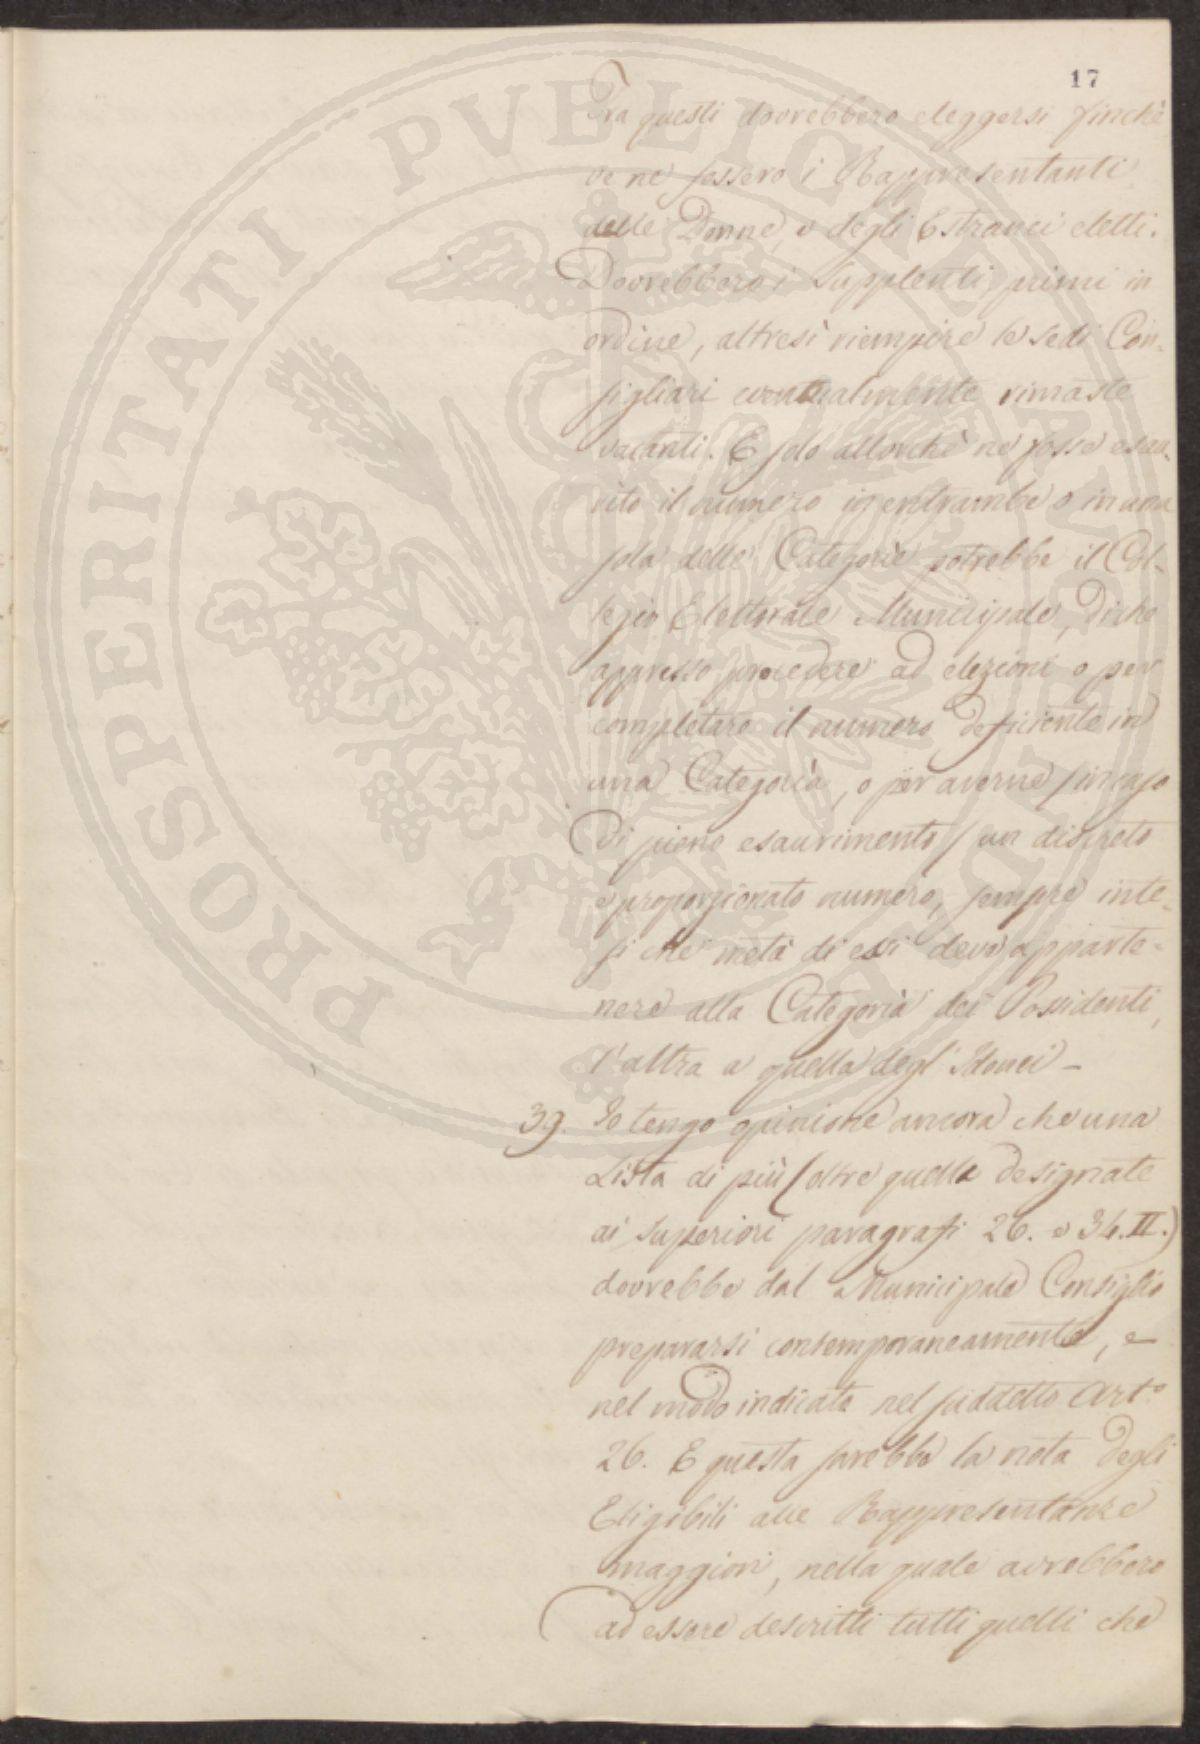 17
Tra questi dovrebbero eleggersi finchè
ve ne fossero i Rappresentanti
delle Donne, e degli Estranei eletti.
Dovrebbero i Supplenti, primi in
ordine, altresì riempire le sedi Con-
sigliari eventualmente rimaste
vacanti. E solo allorchè ne fosse esau-
rito il numero in entrambe o in una
sola delle Categorie potrebbe il Col-
legio Elettorale Municipale, di che
appresso, procedere ad elezioni o per
completare il numero deficiente in
una Categoria, o per averne / in caso
di pieno esaurimento / un discreto
e proporzionato numero, sempre inte-
si che metà di essi deve apparte-
nere alla Categoria dei Possidenti,
l'altra a quella degl' Idonei -
39. Io tengo opinione ancora che una
Lista di più (oltre quelle designate
ai superiori paragrafi 26. e 34. II.)
dovrebbe dal Municipale Consiglio
prepararsi contemporaneamente, e
nel modo indicato nel suddetto Art.º
26. E questa sarebbe la nota degli
Eligibili alle Rappresentanze
maggiori, nella quale avrebbero
ad essere descritti tutti quelli che
PROSPERITATI PVBLICAE AVGENDAE